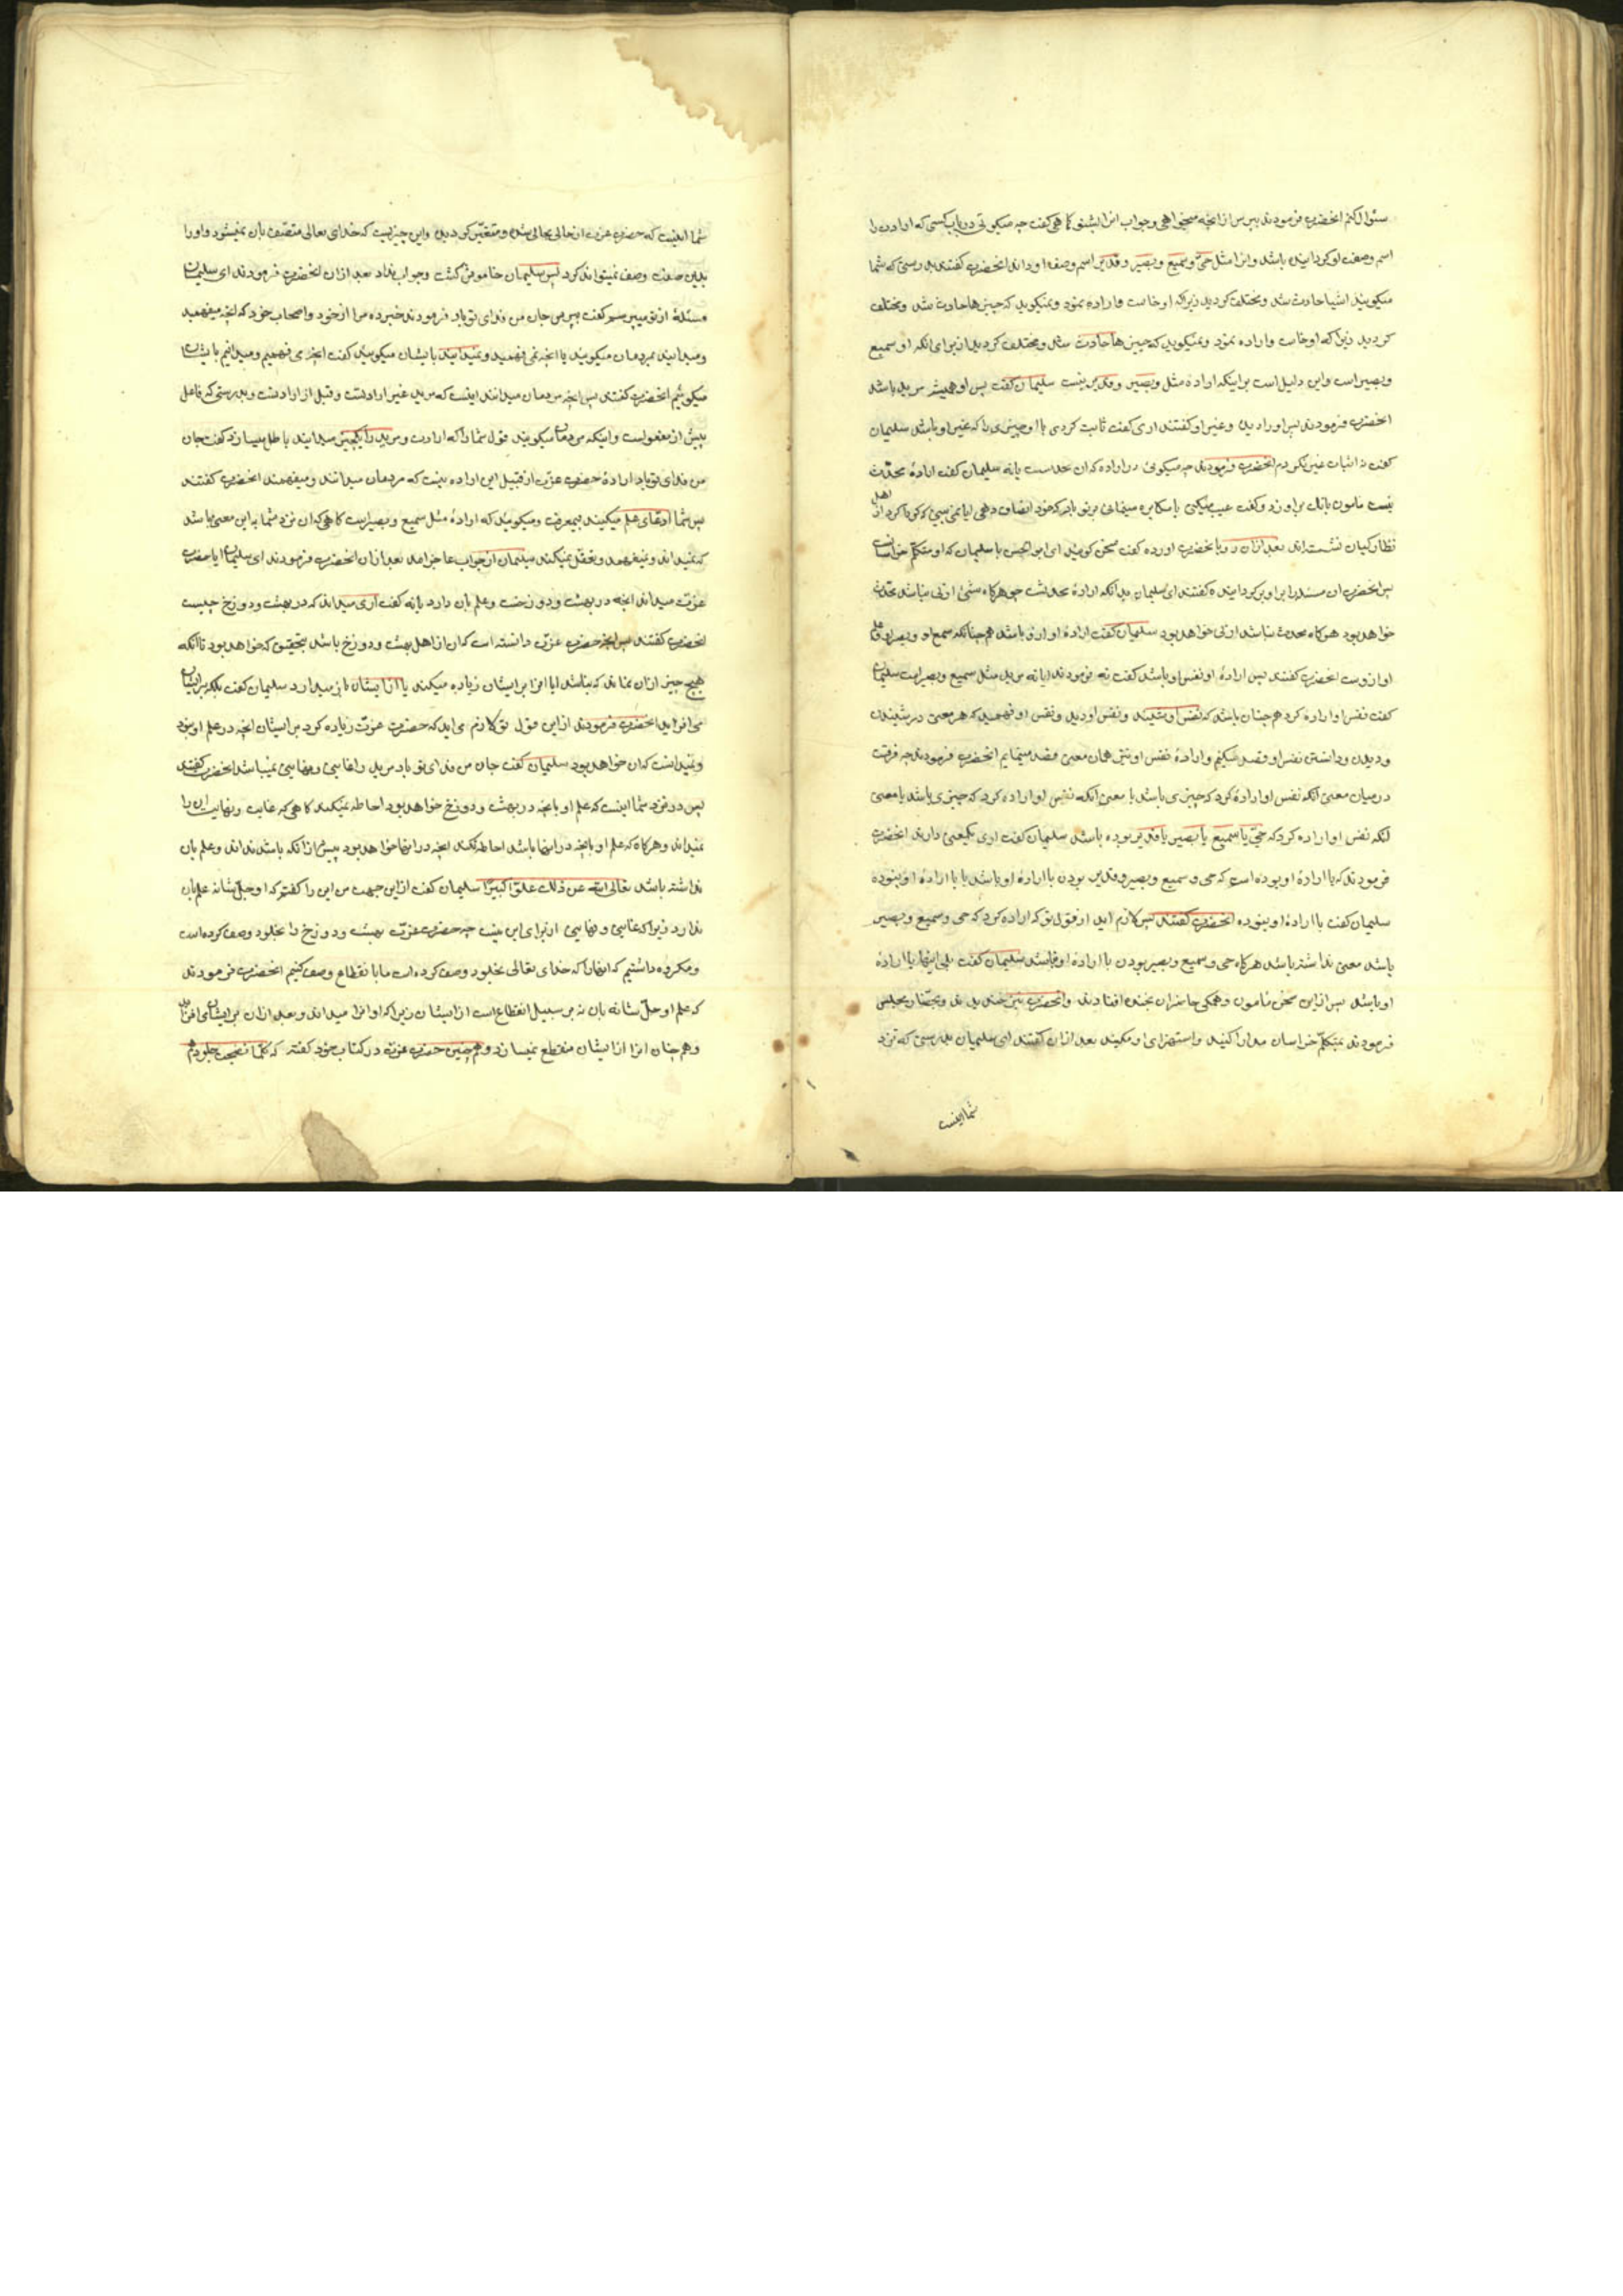 سئوال کنم انحضرت فرمودند بپرس از انچه میخواهی وجواب انرا بشنو کاهی کفت چه میکوئی در باب کسی که اراده را
اسم وصفت او کردانیده باشد وانرا مثل حی وسمیع وبصیر وقدیر اسم وصفه او داند انحضرت کفتند بدرستی که شما
میکویید اشیا حادث شد ومختلف کردید زیراکه او خاست واراده نمود ونمیکویید که چیزها حادث شد ومختلف
کردید زیرا که او خاست واراده نمود ونمیکویید که چیزها حادث شد ومختلف کردید از برای انکه او سمیع
وبصیر است واین دلیل است بر اینکه اراده مثل وبصیر وقدیر نیست سلیمان کفت پس او همیشه مرید باشد
انحضرت فرمودند پس اراده غیر او کفتند اری کفت ثابت کردی با او چیزی را که غیر او باشد سلیمان
کفت اثبات غیر نکردم انحضرت فرمودند چه میکوئی در اراده که ان محدث است یا نه سلیمان کفت ارادهٔ محدث
نیست مامون بانک بر او زد وکفت عیب میکنی یا مکابره مینمائی بر تو باد که خود انصاف دهی ایا نمی بینی که کرداکرد از اهل
نظارکیان نشسته‌اند بعد ازان رو بانحضرت اورده کفت سخن کویید ای ابو الحسن با سلیمان که او متکلم خراسانست
پس انحضرت ان مسئله را بر او برکردانیده کفتند ای سلیمان بدانکه ارادهٔ محدثست چه هرکاه شئ ازلی نباشد محدث
خواهد بود هرکاه محدث نباشد ازلی خواهد بود سلیمان کفت ارادهٔ او ازو باشد همچنانکه سمع او وبصر او وعلم
او ازوست انحضرت کفتند پس ارادهٔ او نفس او باشد کفت نه فرمودند ایا نه مرید مثل سمیع وبصیر است سلیمان
کفت نفس او اراده کرد همچنان باشد که نفس او شنید ونفس او دید ونفس او فهمید که هر معنی در شنیدن
ودیدن ودانستن نفس او قصد میکنیم وارادهٔ نفس او نیز همان معنی قصد مینمایم انحضرت فرمودند چه فرقست
در میان معنی انکه نفس او ارادهٔ کرد که چیزی باشد با معنی انکه نفس او اراده کرد که چیزی باشد یا معنی
انکه نفس او اراده کرد که حی یا سمیع یا بصیر یا قدیر بوده باشد سلیمان کفت اری یکمعنی دارند انحضرت
فرمودند که با ارادهٔ او بوده است که حی وسمیع وبصیر وقدیر بودن با ارادهٔ او باشد یا با ارادهٔ او نبوده
سلیمان کفت با ارادهٔ او نبوده انحضرت کفتند پس لازم اید از قول تو که اراده کرد که حی وسمیع وبصیر
باشد معنی نداشته باشد هرکاه حی وسمیع وبصیر بودن با ارادهٔ او نباشد سلیمان کفت بلی اینها با ارادهٔ
او باشد پس ازاین سخن مامون وهمکی حاضران بخنده افتادند وانحضرت نیز خندیدند وبحضار مجلس
فرمودند بمتکلم خراسان مدارا کنید واستهزای او مکنید بعد ازان کفتند ای سلیمان بدرستی که نزد
شما اینست
شما اینست که حضرت عزت از حالی بحالی شد ومتغیر کردید واین چیزیست که خدای تعالی متصف بان نمیشود واورا
بدین صفت وصف نمیتواند کرد پس سلیمان خاموش کشت وجواب نداد بعد ازان انحضرت فرمودند ای سلیمان
مسئلهٔ از تو میپرسم کفت بپرس جان من فدای تو باد فرمودند خبر ده مرا از خود واصحاب خود که انچه میفهمید
ومیدانید بمردمان میکویید یا انچه نمی فهمید ونمیدانید بایشان میکویید کفت انچه می فهمیم ومیدانیم بایشان
میکوییم انحضرت کفتند پس انچه مردمان میدانند اینست که مرید غیر ارادتست وقبل از ارادتست وبدرستی که فاعل
پیش از مفعولست واینکه مردمان میکویند قول شما را که ارادت ومرید را یکچیز میدانید باطل میسازد کفت جان
من فدای تو باد ارادهٔ حضرت عزت ازقبیل این اراده نیست که مردمان میدانند ومیفهمند انحضرت کفتند
پس شما ادعای علم میکنید بیمعرفت ومیکویید که ارادهٔ مثل سمیع وبصیر است کاهی که ان نزد شما به این معنی باشد
که نمیداند ونمیفهمد وتعقل نمیکند سلیمان ازجواب عاجز امد بعد ازان انحضرت فرمودند ای سلیمان ایا حضرت
عزت میداند انچه در بهشت ودوزخست وعلم بان دارد یا نه کفت اری میداند که در بهشت ودوزخ چیست
انحضرت کفتند پس انچه حضرت عزت دانسته است که ان از اهل بهشت ودوزخ باشد بتحقیق که خواهد بود تا انکه
هیچ چیز ازان نماند که نباشد ایا انرا بر ایشان زیاده میکند یا از ایشان باز میدارد سلیمان کفت بلکه بر ایشان
می افزاید انحضرت فرمودند ازاین قول تو لازم می اید که حضرت عزت زیاده کرد بر ایشان انچه در علم او نبود
ونمیدانست که ان خواهد بود سلیمان کفت جان من فدای تو باد مرید را غایتی ونهایتی نمیباشد انحضرت کفتند
پس در نزد شما اینست که علم او بانچه در بهشت ودوزخ خواهد بود احاطه نمیکند کاهی که غایت ونهایت ان را
نمیداند وهرکاه که علم او بانچه در اینها باشد احاطه نکند انچه در اینها خواهد بود پیش از انکه باشد نداند وعلم بان
نداشته باشد تعالی الله عن ذلک علوا کبیرا سلیمان کفت ازاین جهت من این را کفتم که او جل شانه علم بان
ندارد زیراکه غایتی ونهایتی ازبرای این نیست چه حضرت عزت بهشت ودوزخ را بخلود وصف کرده است
ومکروه داشتیم که اینها را که خدای تعالی بخلود وصف کرده است ما بانقطاع وصف کنیم انحضرت فرمودند
که علم او جل شانه بان نه بر سبیل انقطاع است از ایشان زیراکه او انرا میداند وبعد ازان بر ایشان می افزاید
وهمچنان انرا از ایشان منقطع نمیسازد وهمچنین حضرت عزت در کتاب خود کفته که کلما نضجت جلودهم